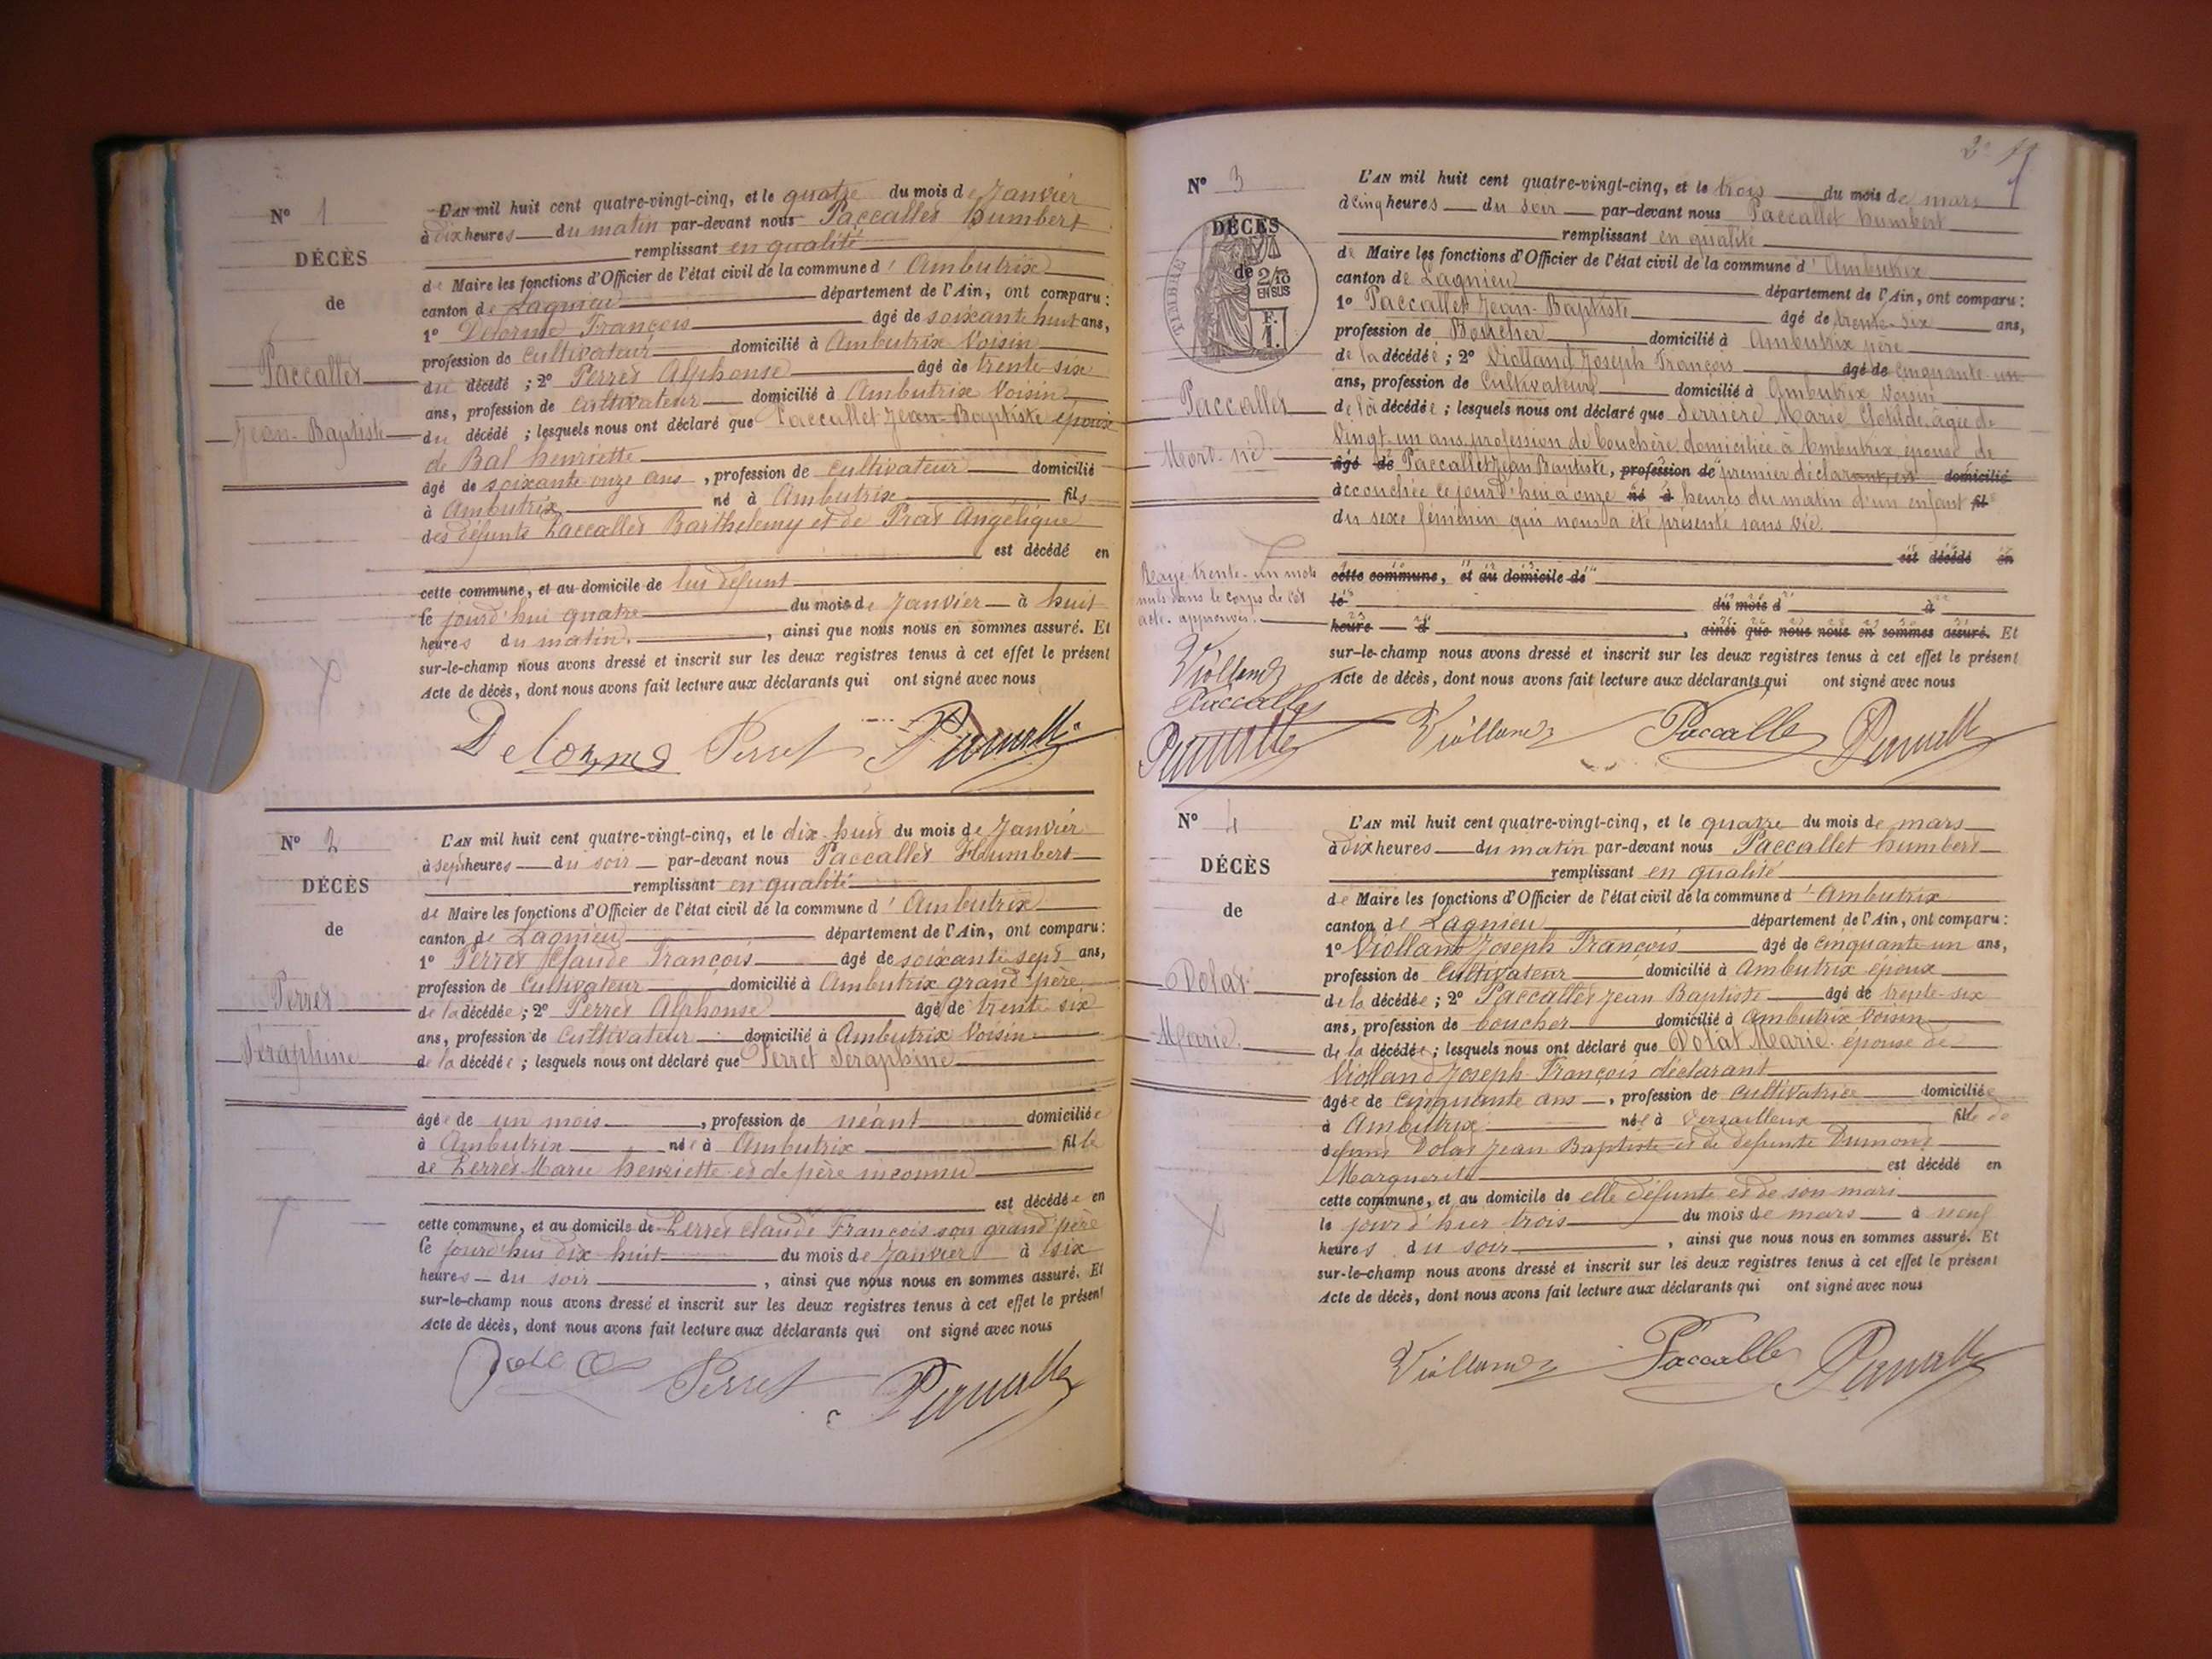 N° 1
DÉCÈS
de
Paccallet
Jean-Baptiste
L'AN mil huit cent quatre-vingt-cinq, et le quatre du mois de Janvier
à dix heures du matin par-devant nous Paccallet humbert
remplissant en qualité
de Maire les fonctions d'Officier de l'état civil de la commune d'Ambutrix
canton de Lagnieu département de l'Ain, ont comparu :
1° Delorme François âgé de soixante huit ans,
profession de Cultivateur domicilié à Ambutrix Voisin
du décédé ; 2° Perret Alphonse âgé de trente six
ans, profession de Cultivateur domicilié à Ambutrix Voisin
du décédé ; lesquels nous ont déclaré que Paccallet Jean-Baptiste époux
de Bal henriette
âgé de soixante onze ans, profession de Cultivateur domicilié
à Ambutrix né à Ambutrix fils
des défunts Paccallet Barthelemy et de Prat Angélique
est décédé en
cette commune, et au domicile de lui défunt
le jourd'hui quatre du mois de Janvier à huit
heures du matin, ainsi que nous nous en sommes assuré. Et
sur-le-champ nous avons dressé et inscrit sur les deux registres tenus à cet effet le présent
Acte de décès, dont nous avons fait lecture aux déclarants qui ont signé avec nous
Delorme Perret
N° 2
DÉCÈS
de
Perret
Séraphine
L'AN mil huit cent quatre-vingt-cinq, et le dix-huit du mois de Janvier
à sept heures du soir par-devant nous Paccallet Humbert
remplissant en qualité
de Maire les fonctions d'Officier de l'état civil de la commune d'Ambutrix
canton de Lagnieu département de l'Ain, ont comparu :
1° Perret Claude François âgé de soixante sept ans,
profession de Cultivateur domicilié à Ambutrix grand-père
de la décédée ; 2° Perret Alphonse âgé de trente six
ans, profession de Cultivateur domicilié à Ambutrix Voisin
de la décédée ; lesquels nous ont déclaré que Perret Seraphine
âgée de un mois, profession de néant domiciliée
à Ambutrix née à Ambutrix fille
de Perret Marie henriette et de père inconnu
est décédée en
cette commune, et au domicile de Perret Claude François son grand père
le jourd'hui dix-huit du mois de Janvier à six
heures du soir, ainsi que nous nous en sommes assuré. Et
sur-le-champ nous avons dressé et inscrit sur les deux registres tenus à cet effet le présent
Acte de décès, dont nous avons fait lecture aux déclarants qui ont signé avec nous
Perret
N° 3
DÉCÈS
de
TIMBRE
2/10
EN SUS
F.
1.
Paccallet
Mort-né
L'AN mil huit cent quatre-vingt-cinq, et le trois du mois de mars
à cinq heures du soir par-devant nous Paccallet humbert
remplissant en qualité
de Maire les fonctions d'Officier de l'état civil de la commune d'Ambutrix
canton de Lagnieu département de l'Ain, ont comparu :
1° Paccallet Jean-Baptiste âgé de trente-six ans,
profession de Boucher domicilié à Ambutrix père
de la décédée ; 2° Violland Joseph François âgé de cinquante-un
ans, profession de Cultivateur domicilié à Ambutrix Voisin
de la décédée ; lesquels nous ont déclaré que Serrière Marie Clotilde, agée de
Vingt-un ans, profession de bouchère, domiciliée à Ambutrix, épouse de
âgé de Paccallet Jean Baptiste, profession de premier déclarant, est domicilié
accouchée ce jourd'hui à onze né à heures du matin d'un enfant fil
du sexe féminin qui nous a été présenté sans vie
est décédé en
cette commune, et au domicile de
le du mois d à
heure d, ainsi que nous nous en sommes assuré. Et
sur-le-champ nous avons dressé et inscrit sur les deux registres tenus à cet effet le présent
Acte de décès, dont nous avons fait lecture aux déclarants qui ont signé avec nous
Rayé trente-un mots
nuls dans le corps de cet
acte. approuvés.
Violland
Paccallet
Violland Paccallet
N° 4
DÉCÈS
de
Dolat
Marie
L'AN mil huit cent quatre-vingt-cinq, et le quatre du mois de mars
à dix heures du matin par-devant nous Paccallet humbert
remplissant en qualité
de Maire les fonctions d'Officier de l'état civil de la commune d'Ambutrix
canton de Lagnieu département de l'Ain, ont comparu :
1° Violland Joseph François âgé de cinquante un ans,
profession de Cultivateur domicilié à Ambutrix époux
de la décédée ; 2° Paccallet Jean Baptiste âgé de trente-six
ans, profession de boucher domicilié à Ambutrix Voisin
de la décédée ; lesquels nous ont déclaré que Dolat Marie épouse de
Violland Joseph-François déclarant
âgée de cinquante ans, profession de cultivatrice domiciliée
à Ambutrix née à Versailleux fille de
défunt Dolat Jean Baptiste et de defunte Dumont
Marguerite est décédé en
cette commune, et au domicile de elle défunte et de son mari
le jour d'hier trois du mois de mars à neuf
heures du soir, ainsi que nous nous en sommes assuré. Et
sur-le-champ nous avons dressé et inscrit sur les deux registres tenus à cet effet le présent
Acte de décès, dont nous avons fait lecture aux déclarants qui ont signé avec nous
Violland Paccallet